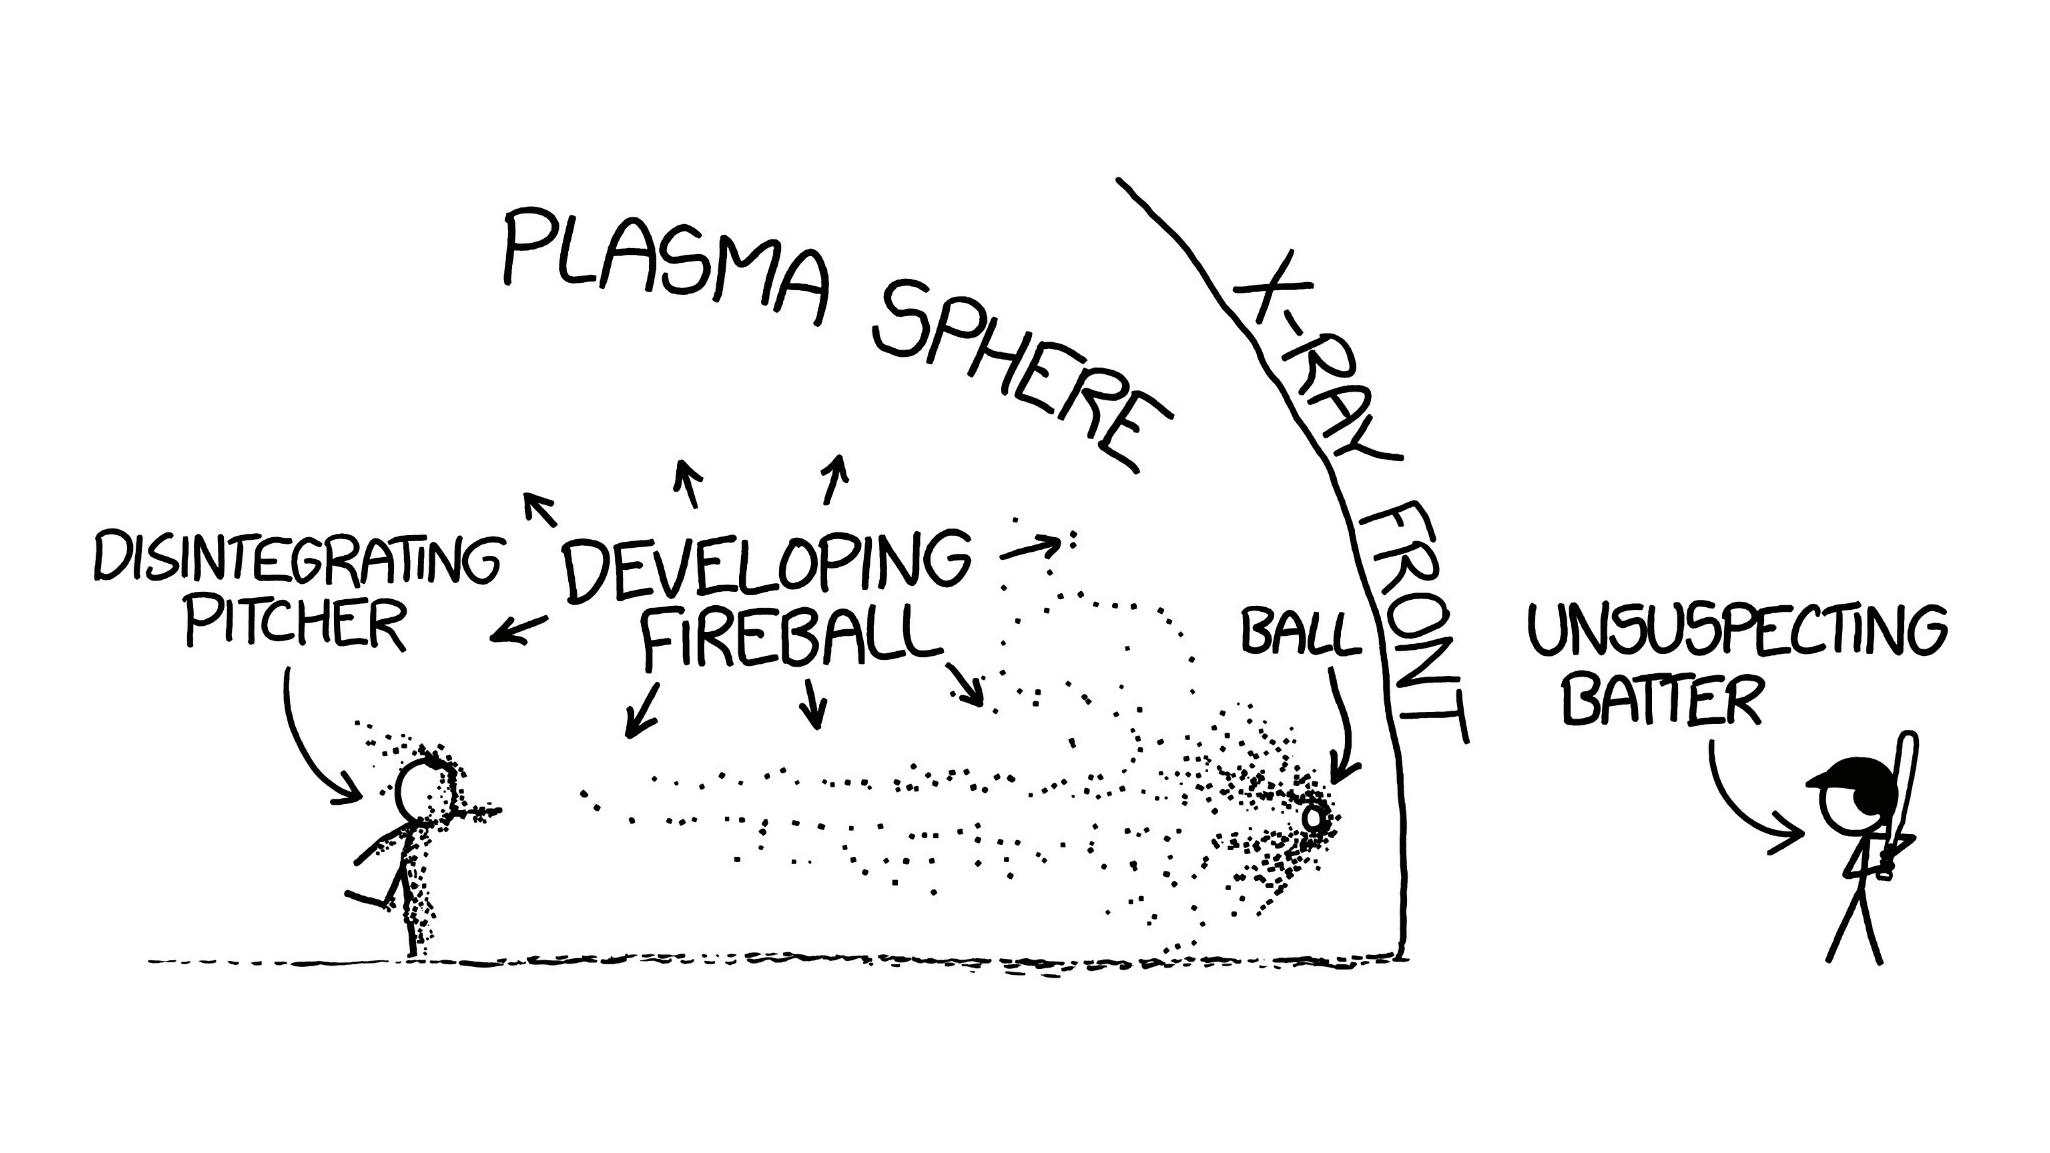 PLASMA SPHERE
X-RAY FRONT
DISINTEGRATING
PITCHER
DEVELOPING
FIREBALL
BALL
UNSUSPECTING
BATTER